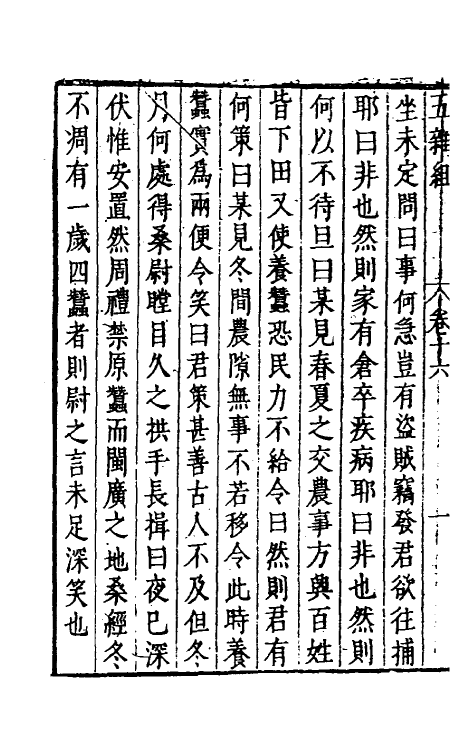 五雜組 卷十六
坐未定問曰事何急豈有盜賊竊發君欲往捕
耶曰非也然則家有倉卒疾病耶曰非也然則
何以不待旦曰某見春夏之交農事方興百姓
皆下田又使養蠶恐民力不給令曰然則君有
何策曰某見冬間農隙無事不若移令此時養
蠶實爲兩便令笑曰君策甚善古人不及但冬
月何處得桑尉瞠目久之拱手長揖曰夜已深
伏惟安置然周禮禁原蠶而閩廣之地桑經冬
不凋有一歲四蠶者則尉之言未足深笑也